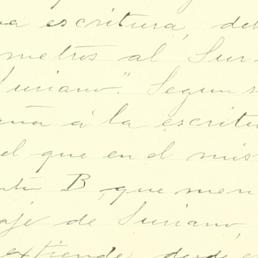 escritura, de
metros al Sur
Suriano". Segun
á la escritu
el que en el mis
B, que men
aje de Suriano,
extiende desde